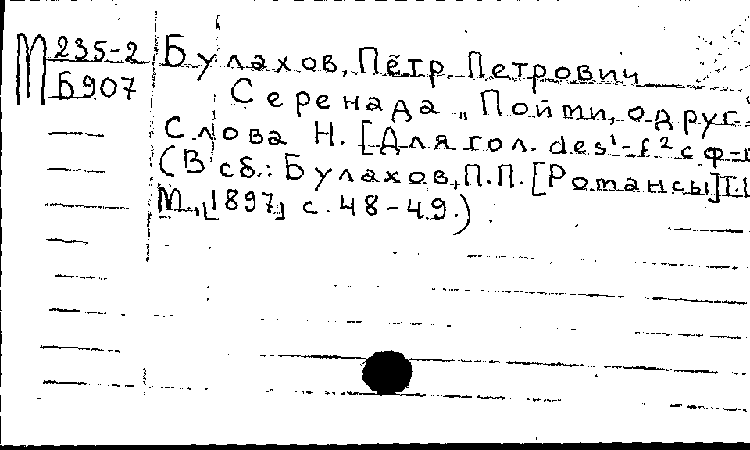 М 235-2 Булахов, Пётр Петрович
Б907 Серенада „Пойми, о друг
Слова Н. [Для гол. des¹-f² с ф-
(В сб.: Булахов, П.П. [Романсы] Т.
М., [1897] с. 48-49.)